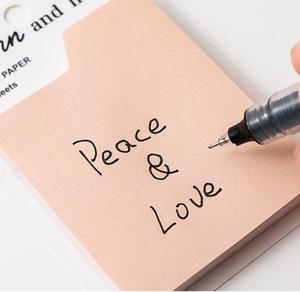 and
PAPER
Peace
&
Love